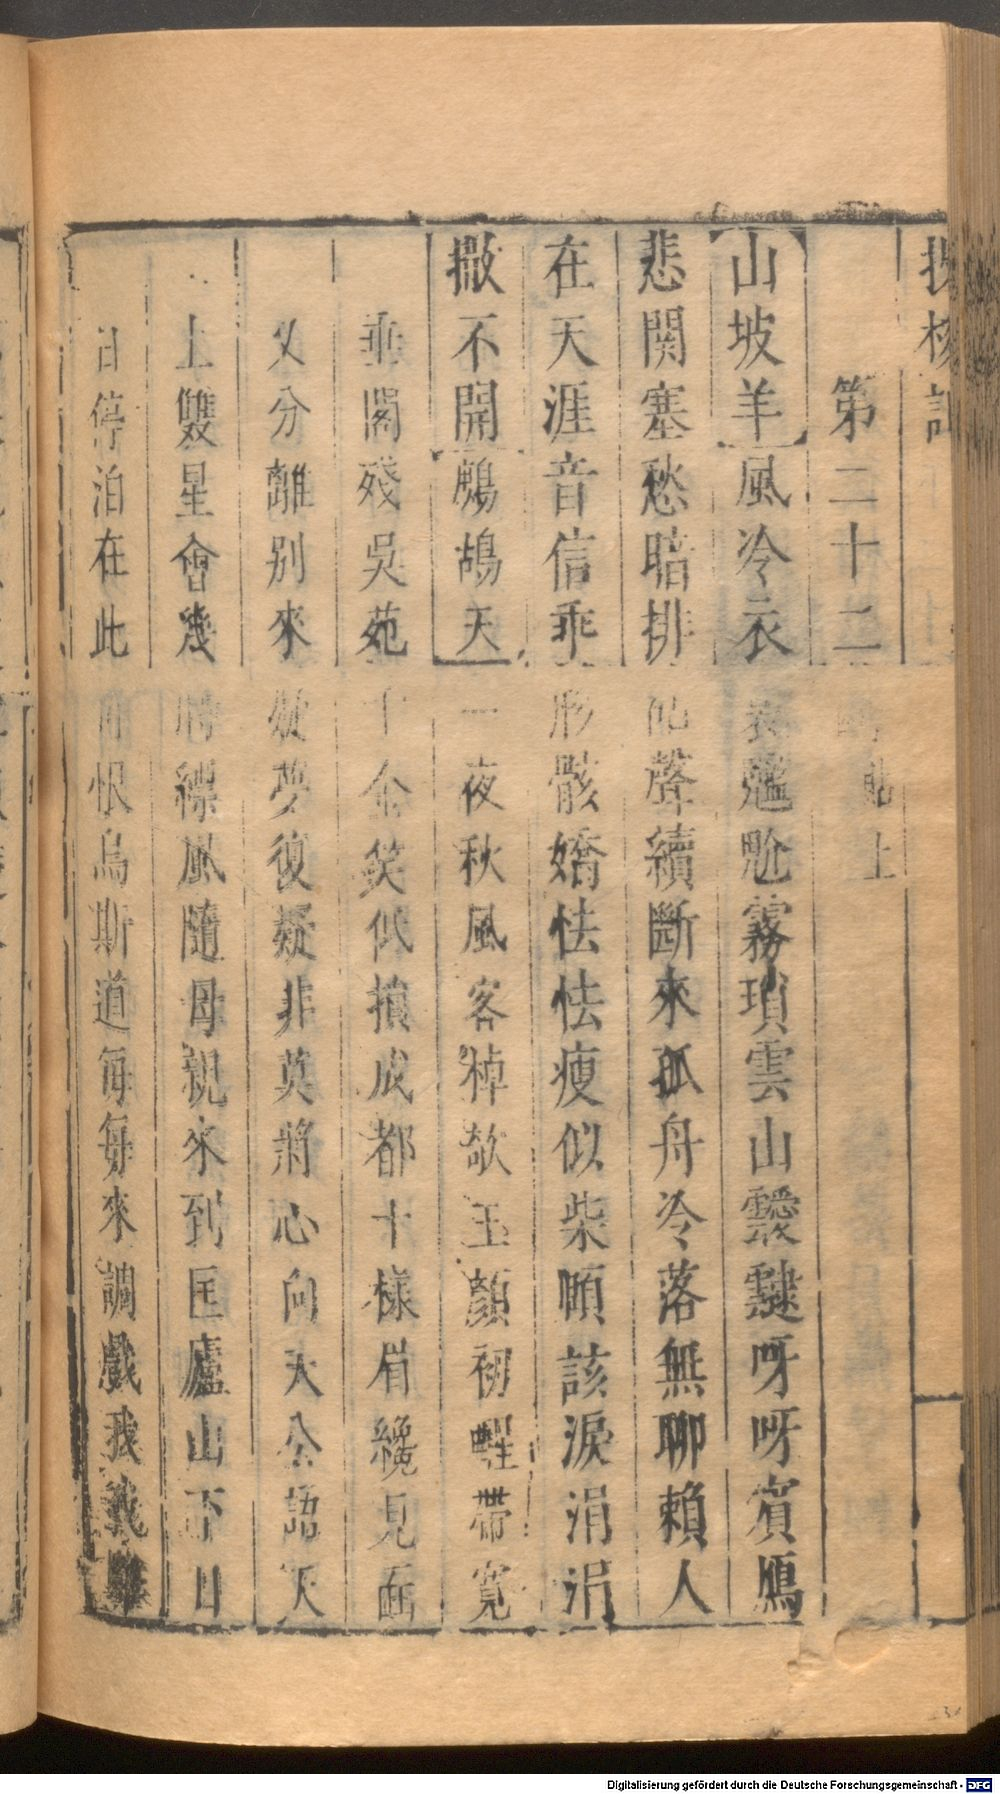 投梭記
第二十二
上
山坡羊風冷衣 霧瑣雲山靉靆呀呀賓鴈
悲關塞愁暗排 聲續斷來孤舟冷落無聊賴人
在天涯音信乖形骸嬌怯怯瘦似柴頤該淚涓涓
撇不開鷓鴣天一夜秋風客棹欹玉顏初 帶寬
垂閣殘吳苑千金笑似損成都十樣眉纔見面
又分離別來疑夢復疑非莫將心向天公語天
上雙星會幾時縹風隨母親來到匡廬山下日
日停泊在此 恨烏斯道每每來調戲我我
Digitalisierung gefördert durch die Deutsche Forschungsgemeinschaft - DFG